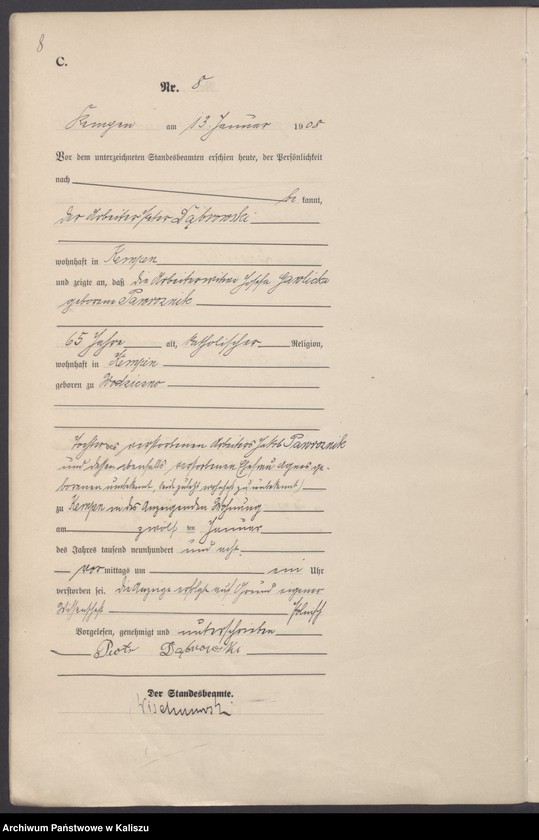 8
C.
Nr. 8
Kempen am 13. Januar 1908
Vor dem unterzeichneten Standesbeamten erschien heute, der Persönlichkeit
nach be kannt,
der Arbeiter Peter Dąbrowski
wohnhaft in Kempen
und zeigte an, daß die Arbeiterwitwe Josefa Gawlicka
geborene Pawroznik
65 Jahre alt, katholischer Religion,
wohnhaft in Kempen
geboren zu Wodziczno
Tochter des verstorbenen Arbeiters Jakob Pawroznik
und dessen ebenfalls verstorbenen Ehefrau Agnes ge-
borenen unbekannt, beide zuletzt wohnhaft zu unbekannt
zu Kempen in des Anzeigenden Wohnung
am zwölf ten Januar
des Jahres tausend neunhundert und acht
vor mittags um ein Uhr
verstorben sei. Die Anzeige erfolgt auf Grund eigener
Wissenschaft
Vorgelesen, genehmigt und unterschrieben
Piotr Dąbrowski
Der Standesbeamte.
Archiwum Państwowe w Kaliszu